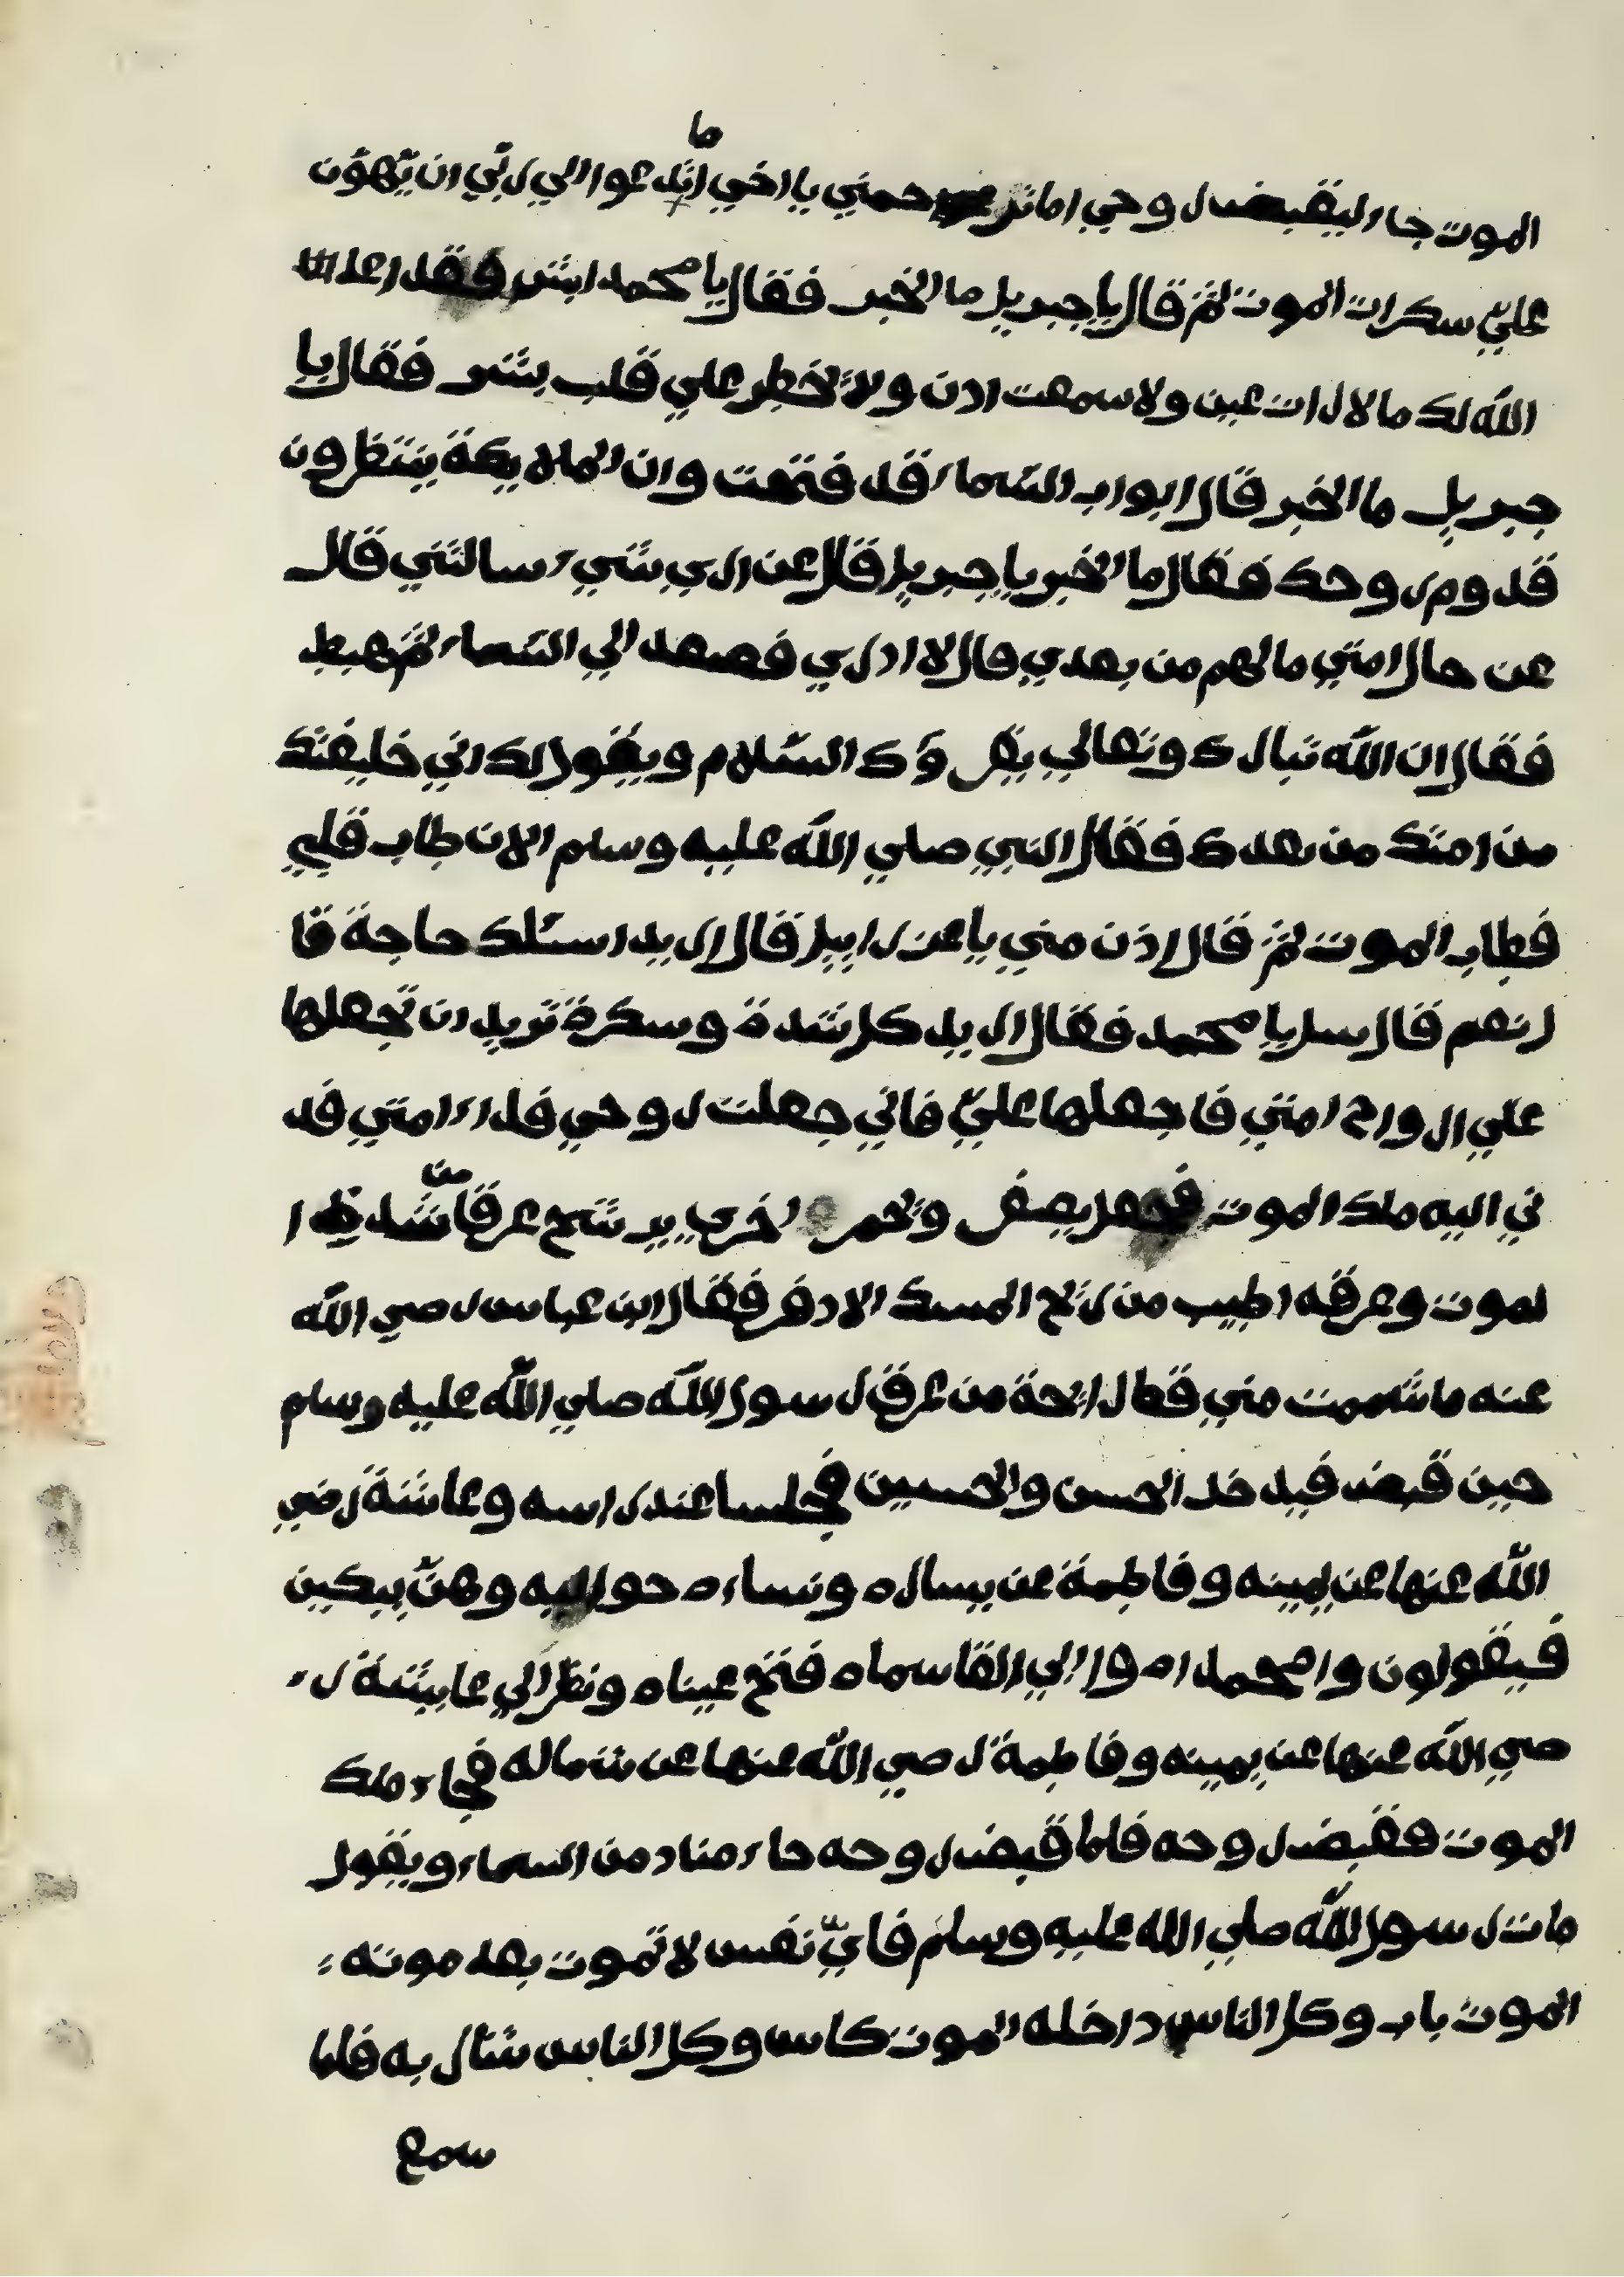 ما
الموت جاء ليقبض روحي اما ترحمني يا اخي اند عوا الي ربّي ان يّهوّن
عليّ سكرات الموت ثمّ قال يا جبريل ما الخبر فقال يا محمد ابشر فقد اعد
اللّه لك ما لا رات عين ولا سمعت اذن ولا خطر علي قلب بشر فقال يا
جبريل ما الخبر قال ابواب السّماء قد فتحت وان الملايكة ينتظرون
قدوم روحك فقال ما الخبر يا جبريل قال عن اي شيء سالتني قال
عن حال امتي ما لهم من بعدي قال لا ادري فصعد الي السّماء ثمّ هبط
فقال ان اللّه تبارك وتعالي يقروك السّلام ويقول لك اني خليفتك
من امتك من بعدك فقال النبي صلي اللّه عليه وسلم الان طاب قلبي
فطاب الموت ثمّ قال اذن مني يا عزرايل قال اريد اسئلك حاجة قا
ل نعم قال سل يا محمد فقال اريد كل شدة وسكرة تريد ان تجعلها
علي ارواح امتي فاجعلها عليّ فاني جعلت روحي فداء امتي فد
ني اليه ملك الموت فجعل يصفر وتحمر اخري يرشح عرقا من شد ا
لموت وعرقه اطيب من ريح المسك الادفر فقال ابن عباس رضي اللّه
عنه ما شممت مني قط رائحة من عرق رسول اللّه صلي اللّه عليه وسلم
حين قبض فيد خد الحسن والحسين فجلسا عند راسه وعائشة رضي
اللّه عنها عن يمينه وفاطمة عن يساره ونساءه حواليه وهنّ يبكين
فيقولون وا محمداه وا ابي القاسماه فتح عيناه ونظر الي عايشة ر
ضي اللّه عنها عن يمينه وفاطمة رضي اللّه عنها عن شماله فجاء ملك
الموت فقبض روحه فلما قبض روحه جاء مناد من السماء ويقول
مات رسول اللّه صلي اللّه عليه وسلم فايّ نفس لا تموت بعد موته
الموت باب وكل الناس داخله الموت كاس وكل الناس شارب به فلما
سمع